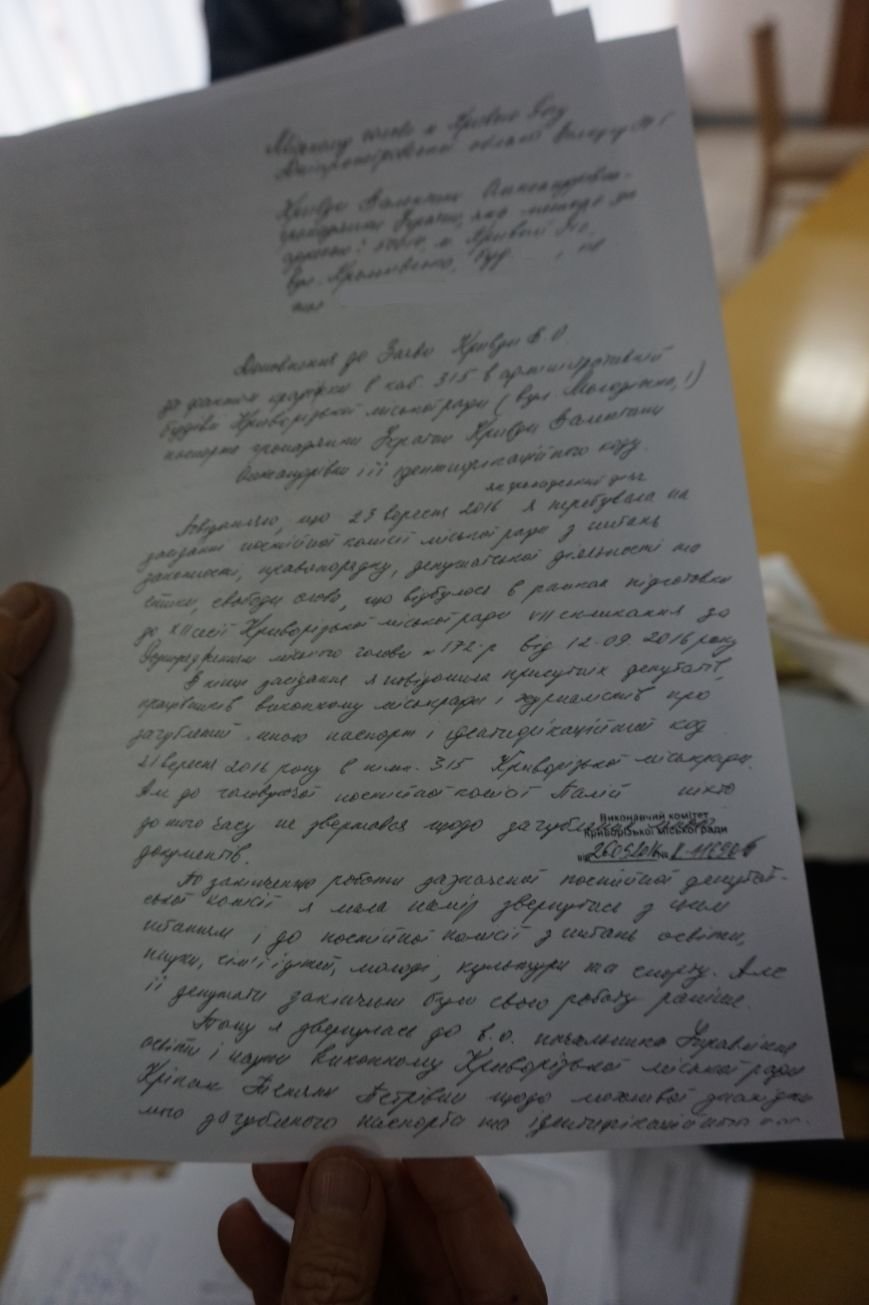 Міському голові м. Кривого Рогу
Дніпропетровської області Вілкулу Ю.Г.
Кривди Валентини Олександрівни
громадянки України, яка мешкає за
адресою: м. Кривий Ріг,
вул. буд. , кв
тел
Доповнення до Заяви Кривди В.О.
за фактом крадіжки в каб. 315 в адміністративній
будівлі Криворізької міської ради (вул. Молодіжна, 1)
паспорта громадянки України Кривди Валентини
Олександрівни і її ідентифікаційного коду.
як громадський діяч
Повідомляю, що 23 вересня 2016 я перебувала на
засіданні постійної комісії міської ради з питань
законності, правопорядку, депутатської діяльності та
етики, свободи слова, що відбулося в рамках підготовки
до XII сесії Криворізької міської ради VII скликання за
Розпорядженням міського голови №172-р від 12.09.2016 року
В кінце засідання я повідомила присутніх депутатів,
працівників виконкому міськради і журналістів про
загублений мною паспорт і ідентифікаційний код
21 вересня 2016 року в 315 Криворізької міськради.
Але до головуючої постійної комісії Палій ніхто
до того часу не звертався щодо загублених
документів.
Виконавчий комітет
Криворізької міської ради
По закінченню роботи зазначеної постійної депутат-
ської комісії я мала намір звернутися з цим
питанням і до постійної комісії з питань освіти,
науки, сім'ї і дітей, молоді, культури та спорту. Але
її депутати закінчили були свою роботу раніше.
Тому я звернулася до в.о. начальника Управління
освіти і науки виконкому Криворізької міської ради
Кріпак Тетяни Петрівни щодо можливої знахідки
мого загубленого паспорта та ідентифікаційного